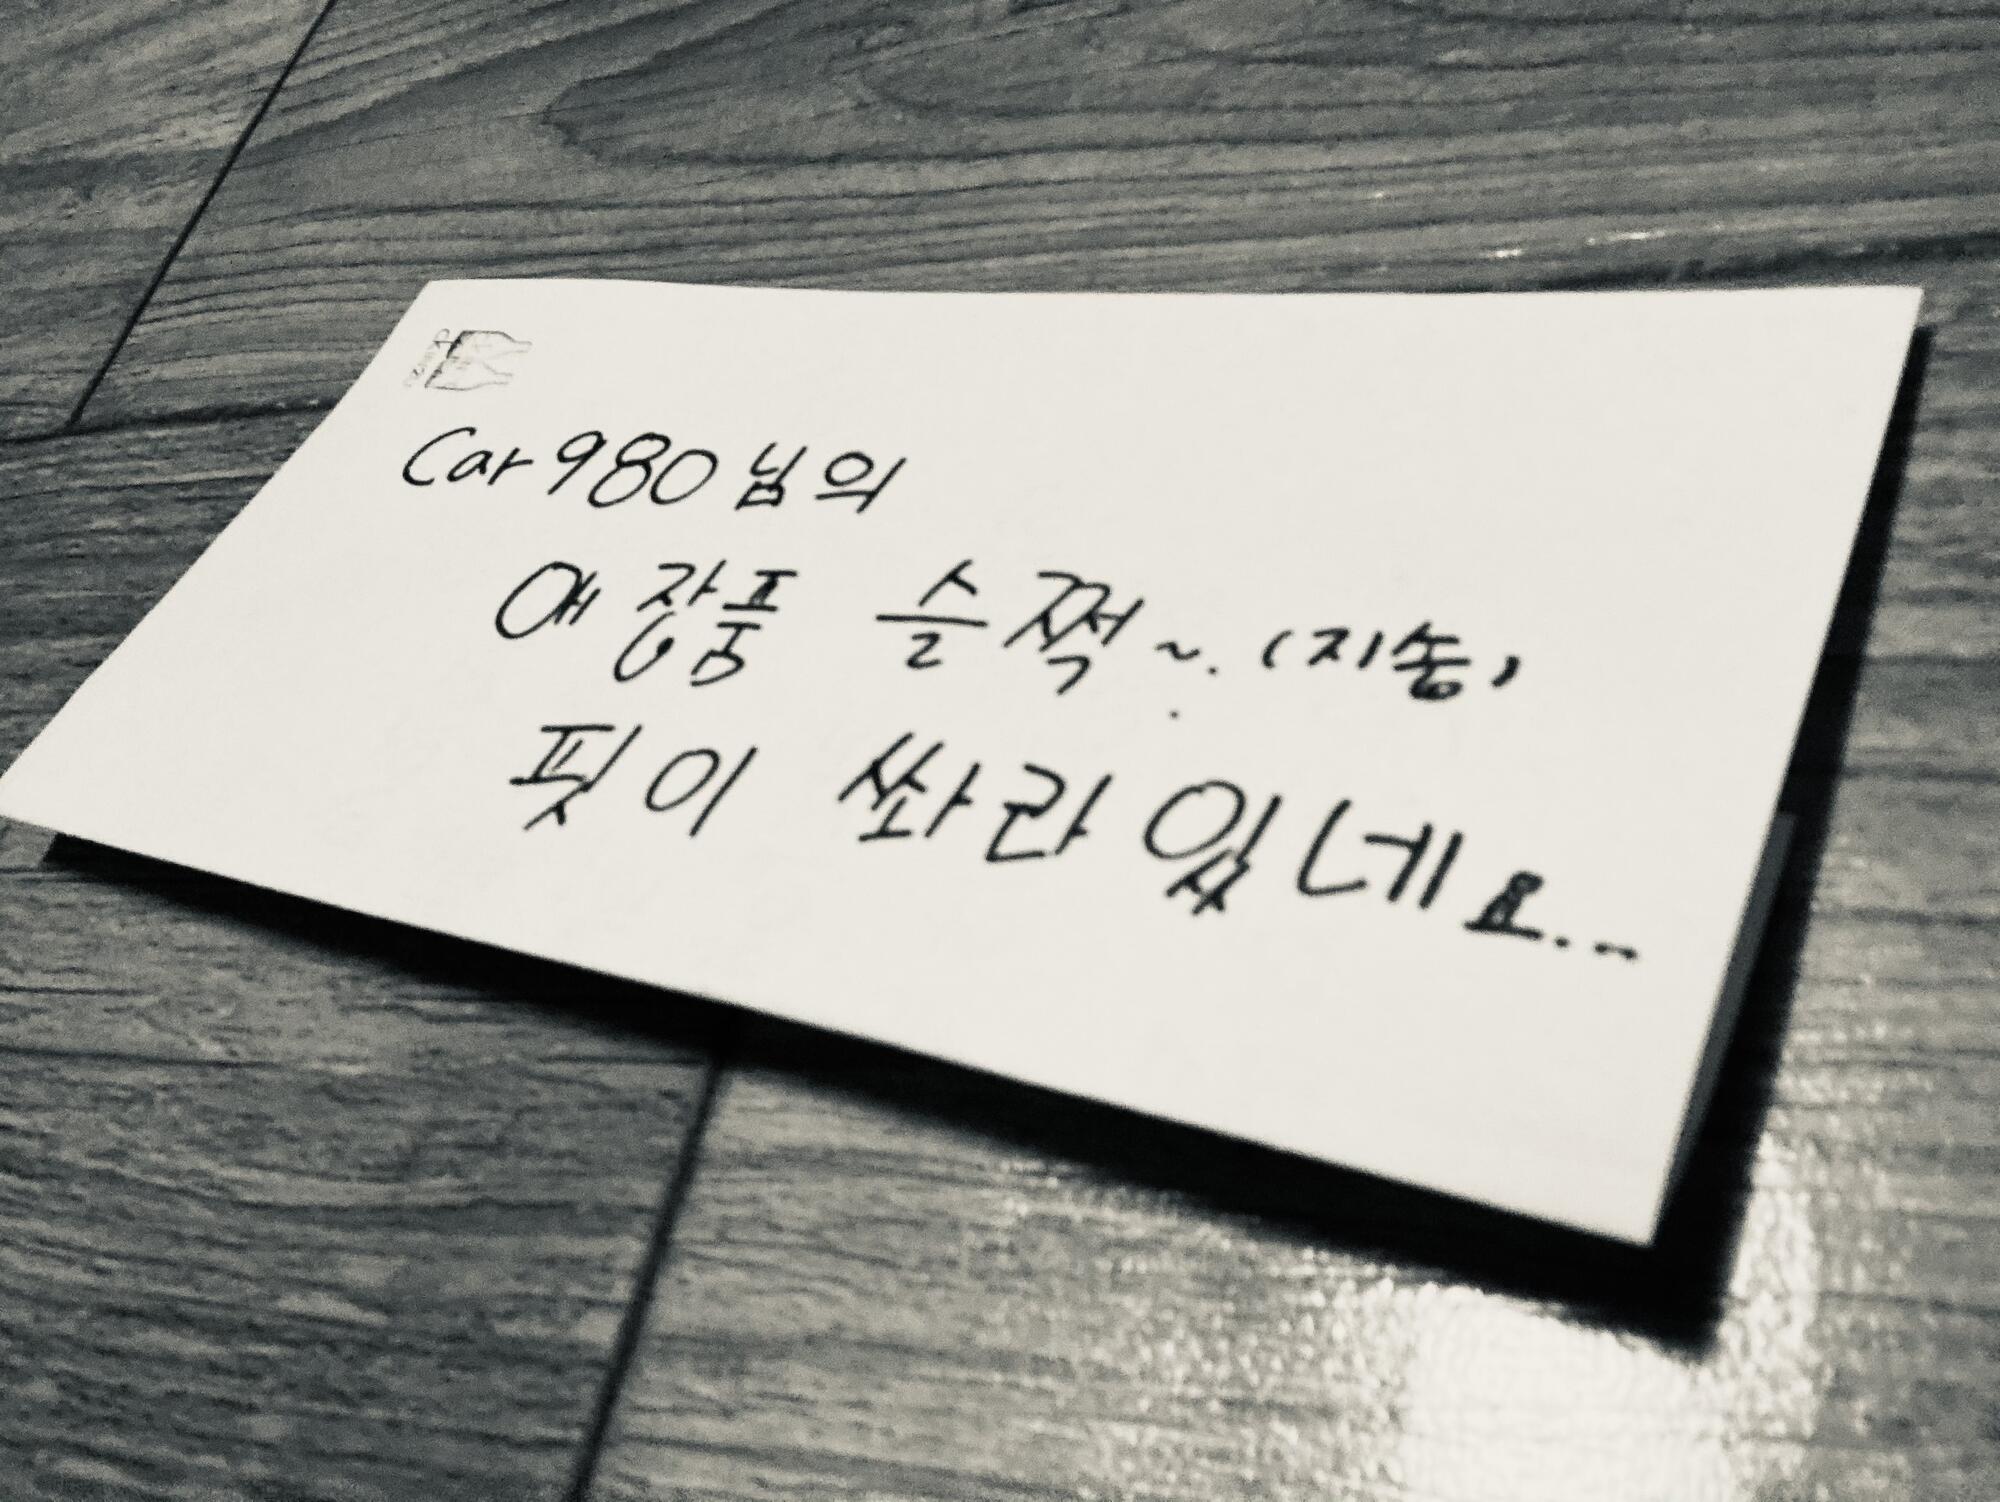 Car980님의
애장품 슬쩍~. (지송)
핏이 쏴라있네요...